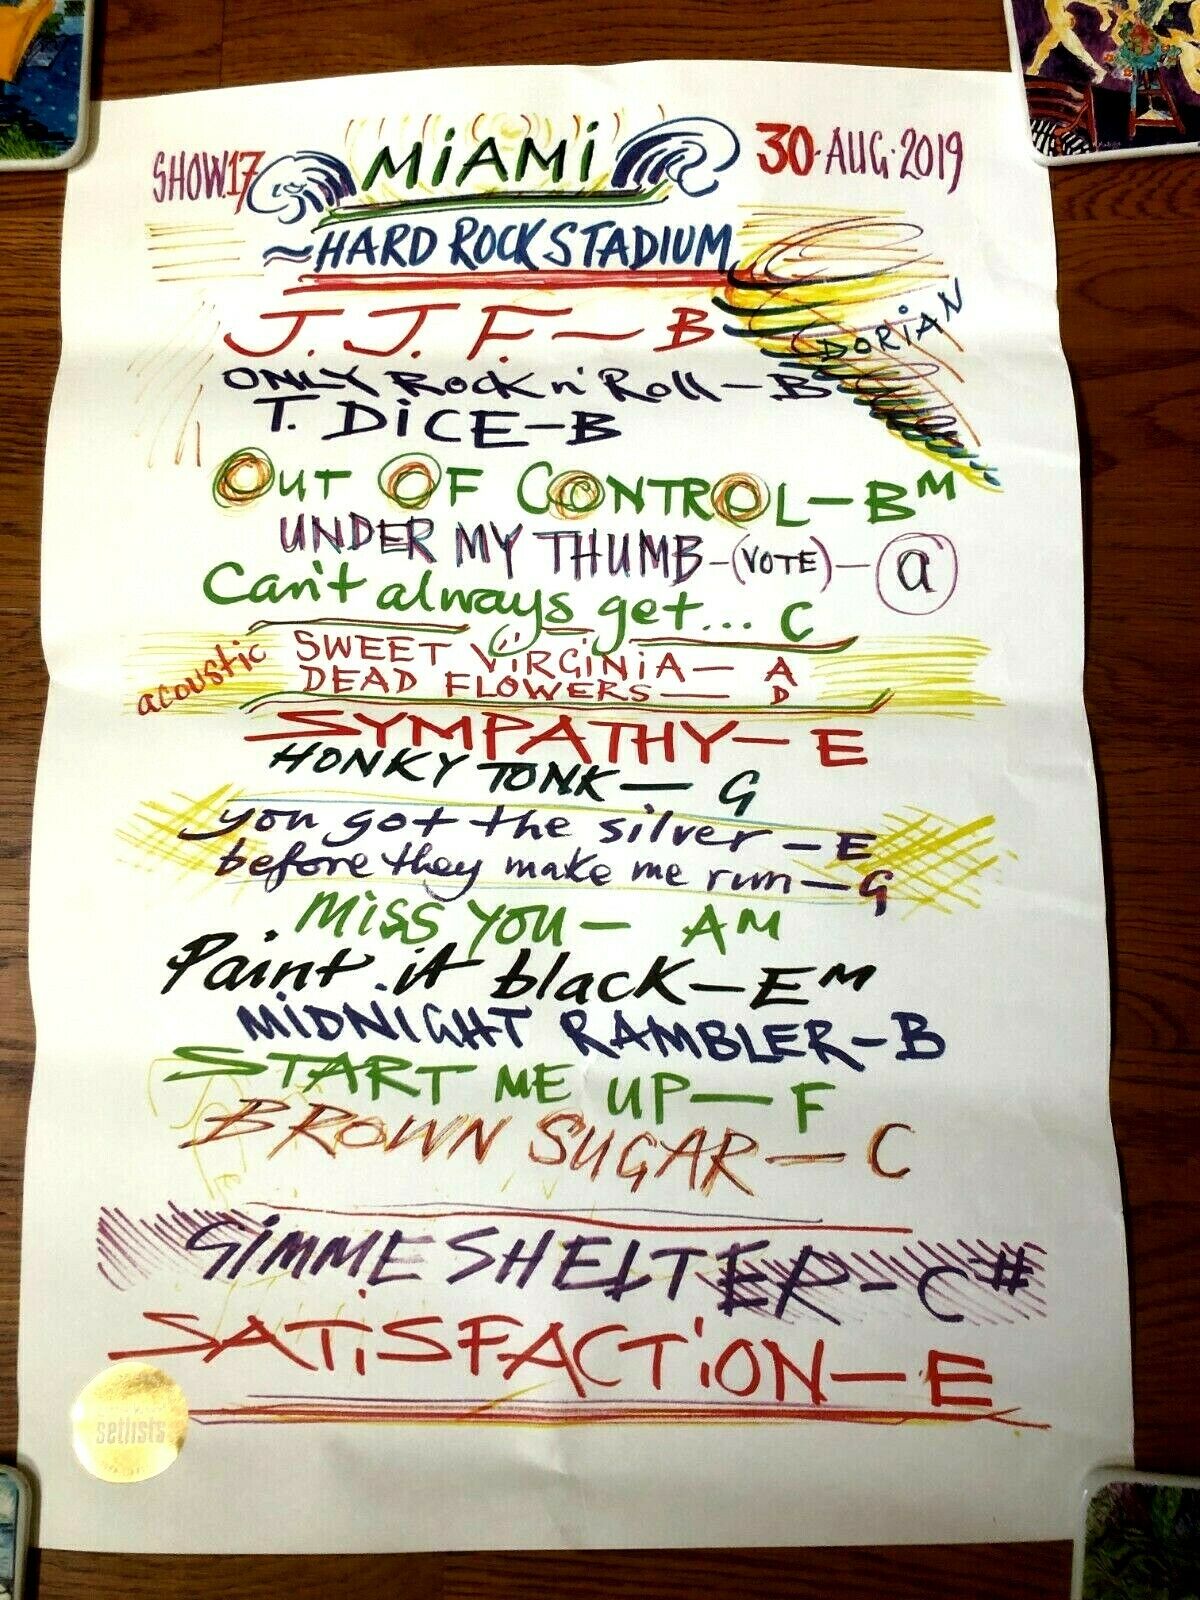 SHOW.17 MiAMi 30·AUG·2019
~HARD ROCK STADIUM
DORiAN
J. J. F. ~ B
ONLY Rock n' Roll - B
T. DiCE - B
OUT OF CONTROL - BM
UNDER MY THUMB - (VOTE) - a
Can't always get... C
acoustic
SWEET ViRGiNiA - A
DEAD FLOWERS - D
SYMPATHY - E
HONKY TONK - G
you got the silver - E
before they make me run - G
Miss you - AM
Paint it black - EM
MiDNiGHT RAMBLER - B
START ME UP - F
BROWN SUGAR - C
GiMME SHELTER - C#
SATiSFACTiON - E
setlists